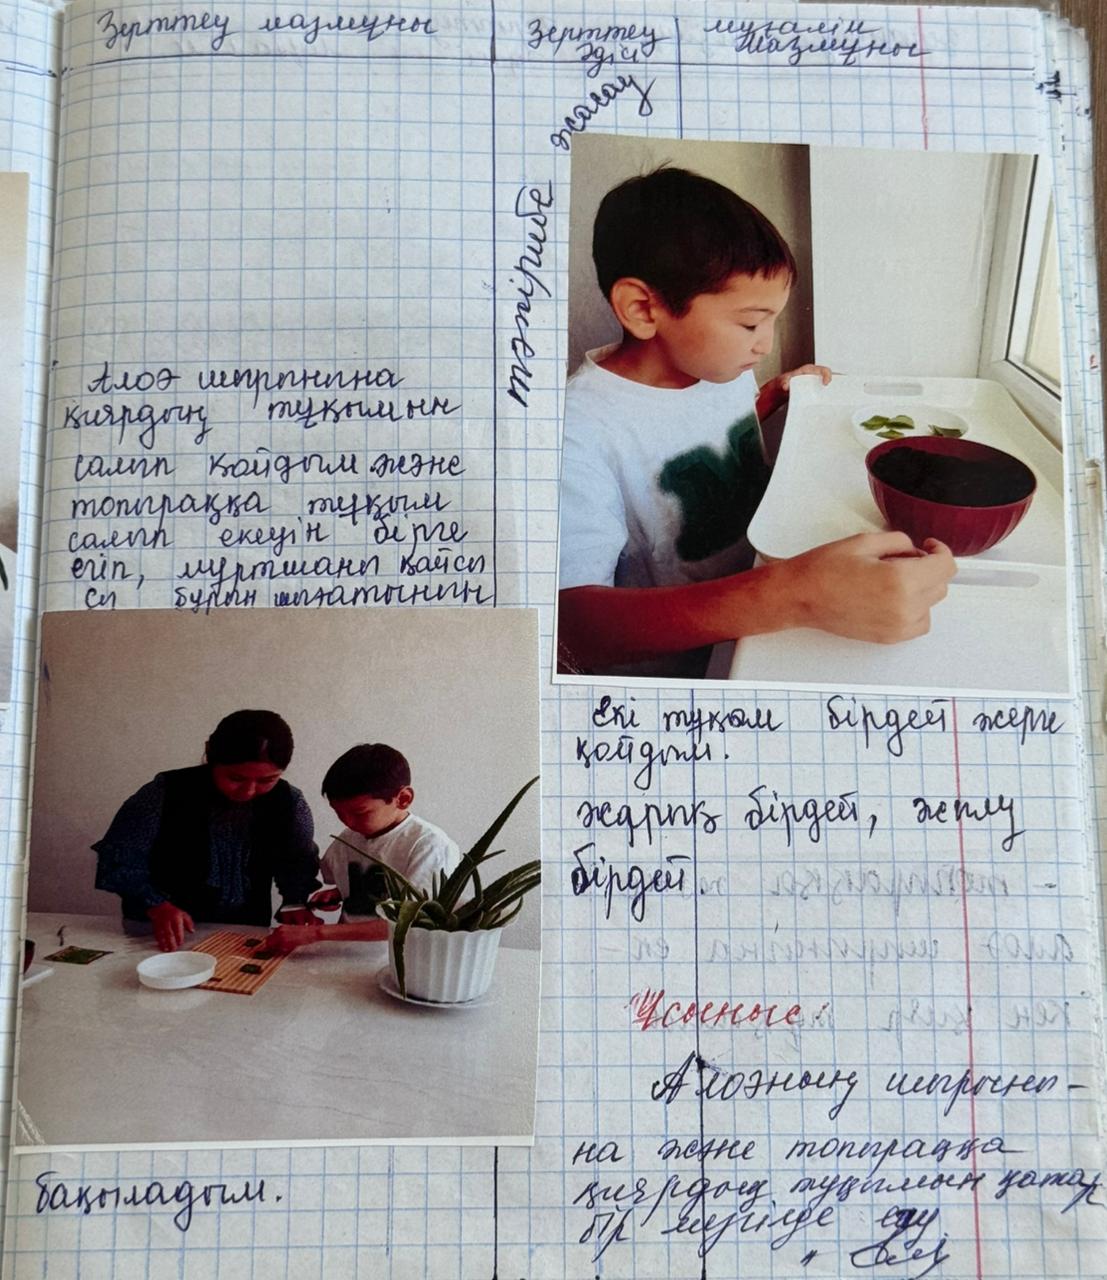 Зерттеу мазмұны
Зерттеу
әдісі
мұғалім
мазмұны
тәжірибе жасау
Алоэ шырынына
қиярдың тұқымын
салып қойдым және
топыраққа тұқым
салып екеуін бірге
егіп, мұртшаны қайсы
сы бұрын шығатынын
бақыладым.
Екі тұқым бірдей жерге
қойдым.
жарық бірдей, жылу
бірдей
Ұсыныс:
Алоэның шырыны-
на және топыраққа
қиярдың тұқымын қатар
бір мезгілде егу